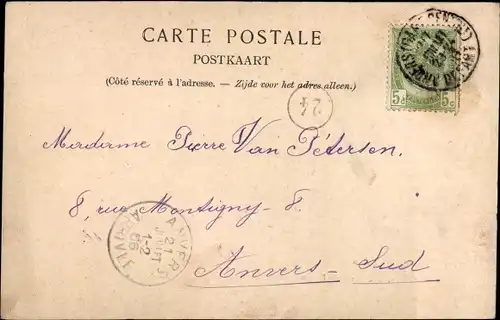 CARTE POSTALE
POSTKAART
(Côté réservé à l'adresse. — Zijde voor het adres alleen.)
5c 5c
24
Madame Pierre Van Pétersen.
8, rue Montigny - 8.
Anvers - Sud
ANVERS
21
1-2
ARRIVÉE